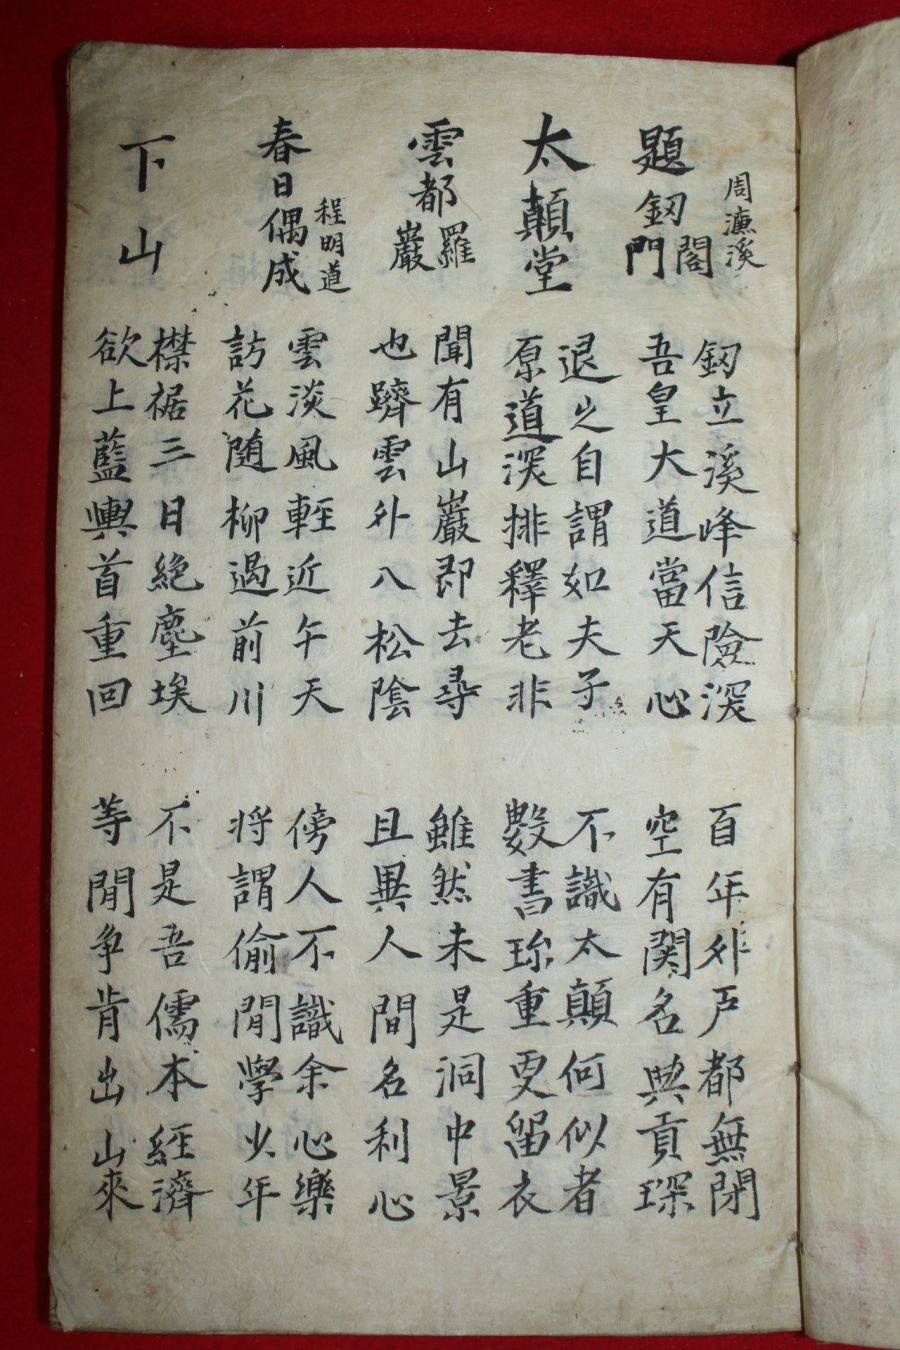 周濂溪
題釰門閣
釰立溪峰信險深
吾皇大道當天心
百年外戶都無閉
空有関名典貢琛
太顛堂
退之自謂如夫子
原道深排釋老非
不識太顛何似者
數書珎重更留衣
雲都羅巖
聞有山巖即去尋
也躋雲外入松陰
雖然未是洞中景
且異人間名利心
程明道
春日偶成
雲淡風輕近午天
訪花隨柳過前川
傍人不識余心樂
將謂偷閒學少年
下山
襟裾三日絶塵埃
欲上藍輿首重回
不是吾儒本經濟
等閒争肯出山來